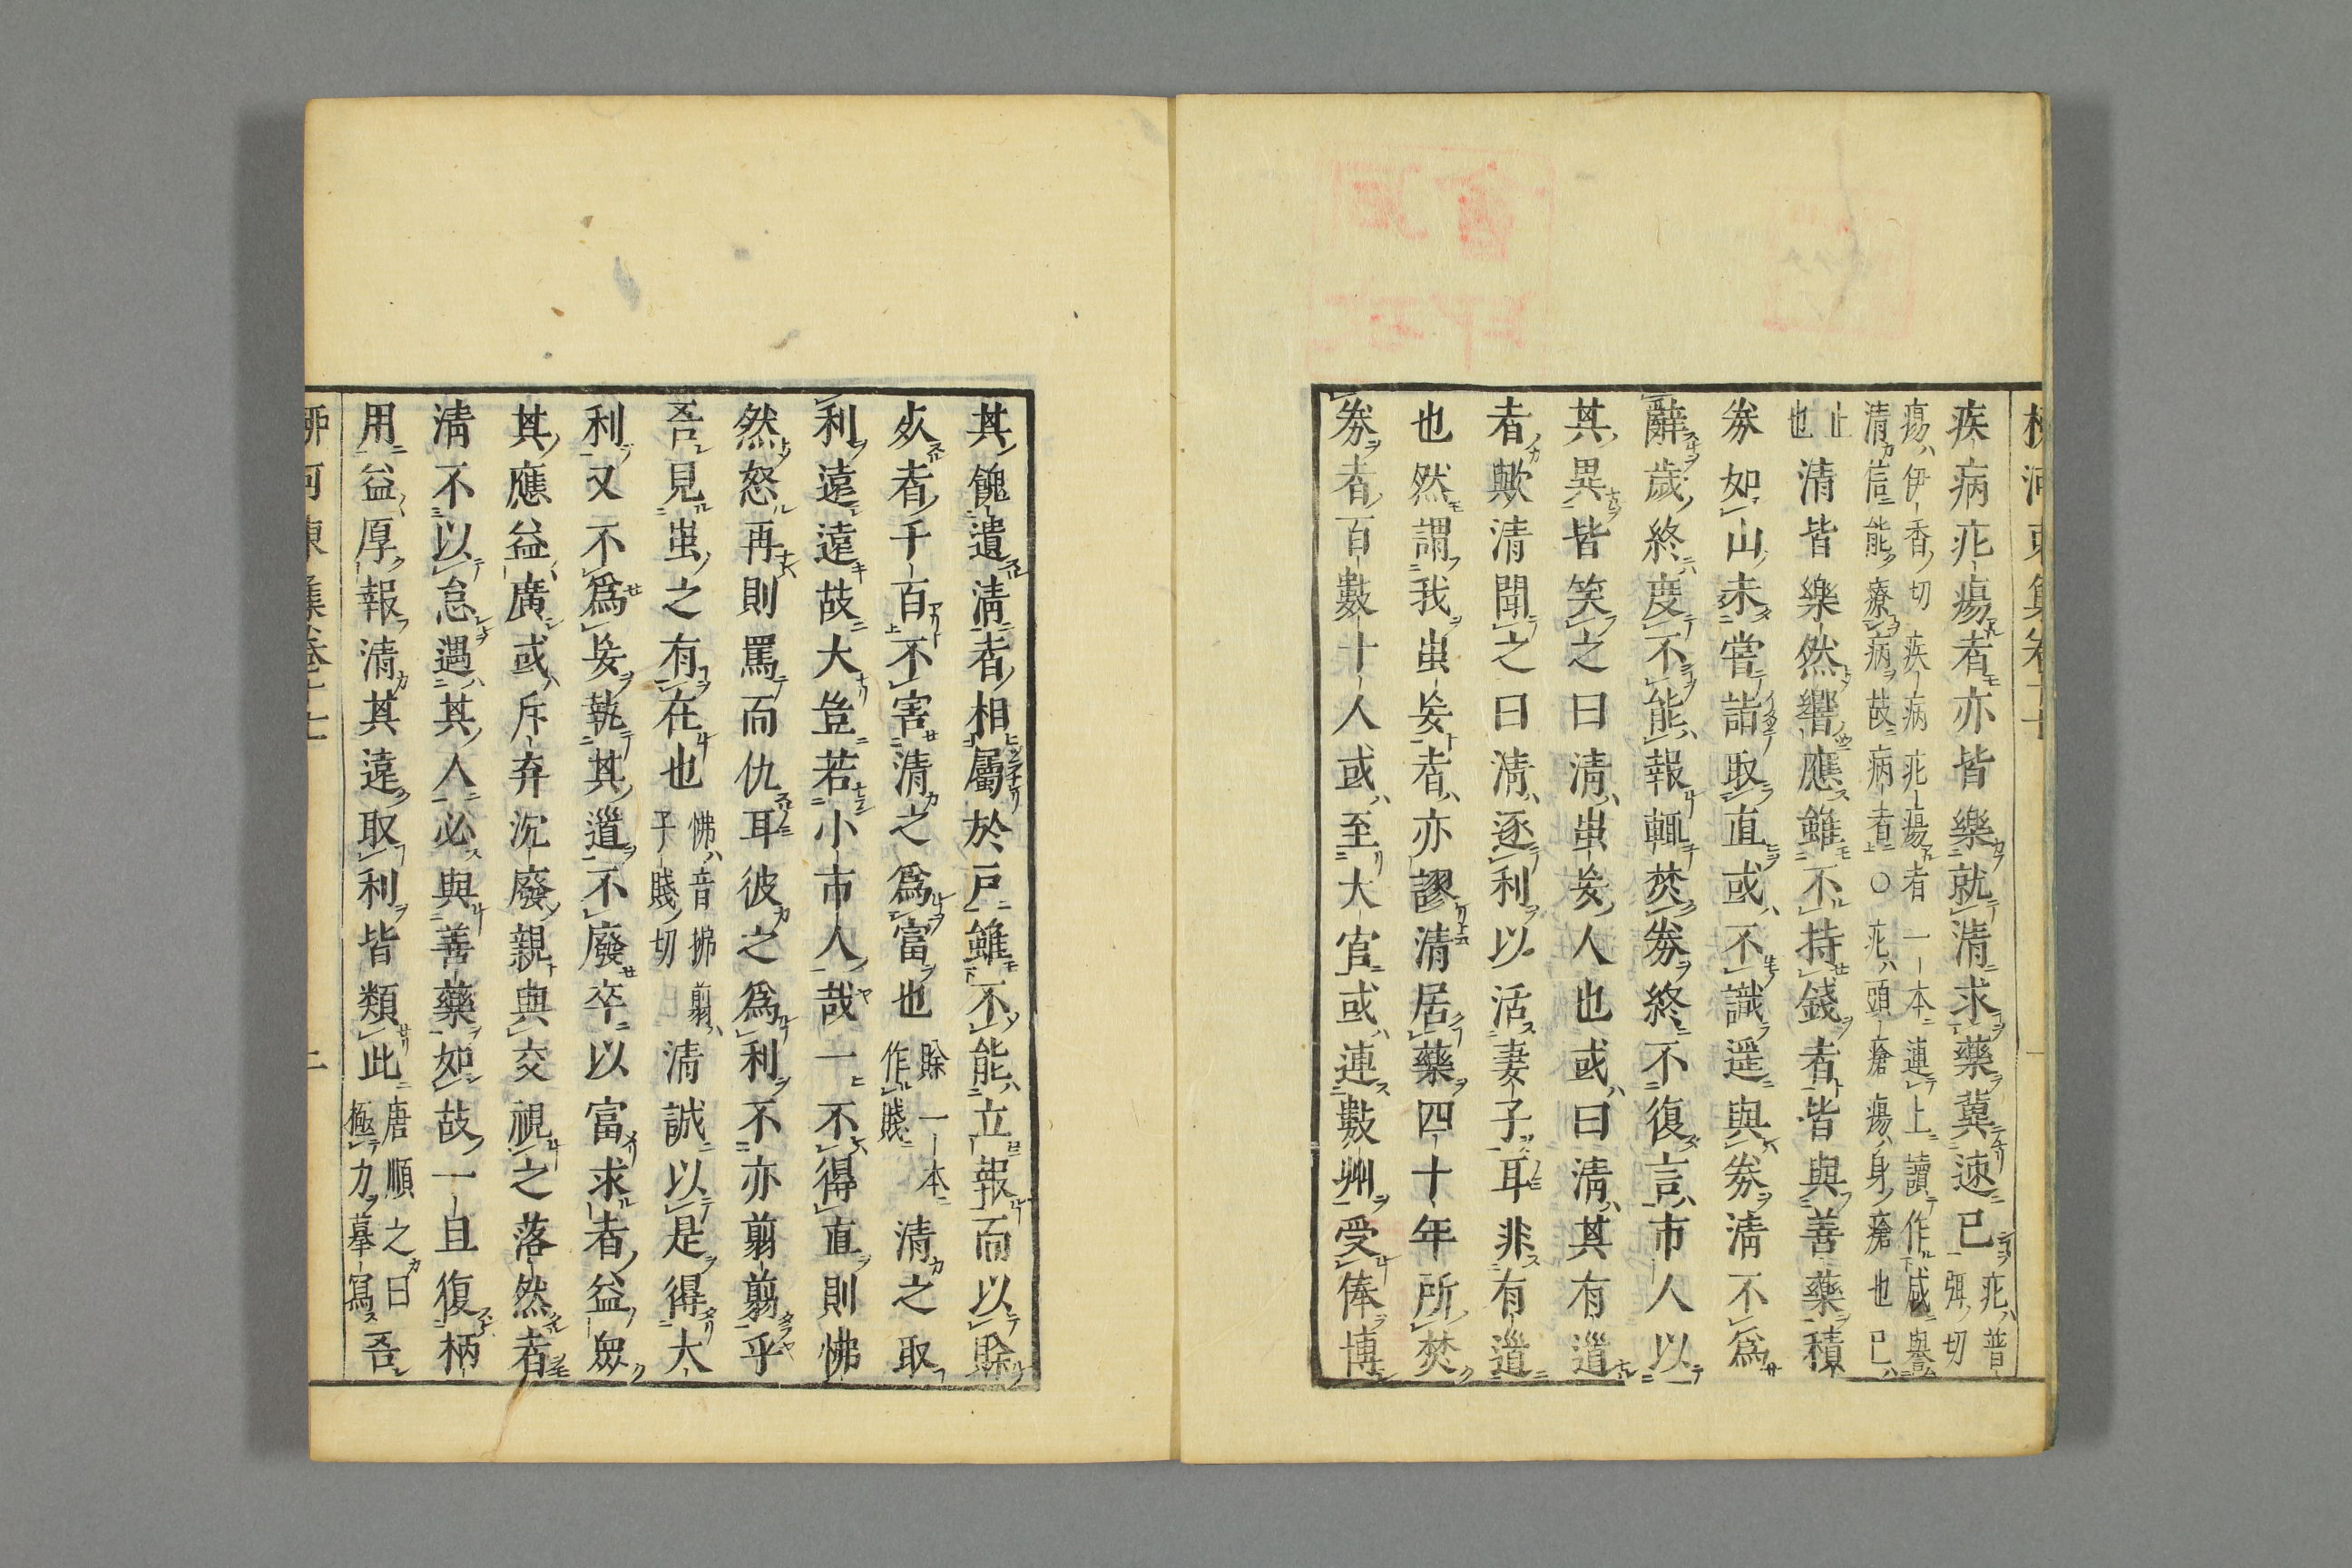 柳河東集卷十七
疾病疕瘍者亦皆樂就清求藥冀速已疕普弭切
瘍伊香切疾病疕瘍者一本連上讀作咸譽
清信能療病故病者○疕頭瘡瘍身瘡也已
止也清皆樂然響應雖不持錢者皆與善藥積
劵如山未嘗詣取直或不識遥與劵清不爲
辭歳終度不能報輒焚劵終不復言市人以
其異皆笑之曰清蚩妄人也或曰清其有道
者歟清聞之曰清逐利以活妻子耳非有道
也然謂我蚩妄者亦謬清居藥四十年所焚
劵者百數十人或至大官或連數州受俸博
其餽遺清者相屬於戸雖不能立報而以賖
死者千百不害清之爲富也賖一本作賤清之取
利遠遠故大豈若小市人哉一不得直則怫
然怒再則罵而仇耳彼之爲利不亦翦翦乎
吾見蚩之有在也怫音拂翦子賤切清誠以是得大
利又不爲妄執其道不廢卒以富求者益衆
其應益廣或斥弃沉廢親與交視之落然者
清不以怠遇其人必與善藥如故一且復柄
用益厚報清其遠取利皆類此唐順之曰極力摹寫吾
柳河東集卷十七 二